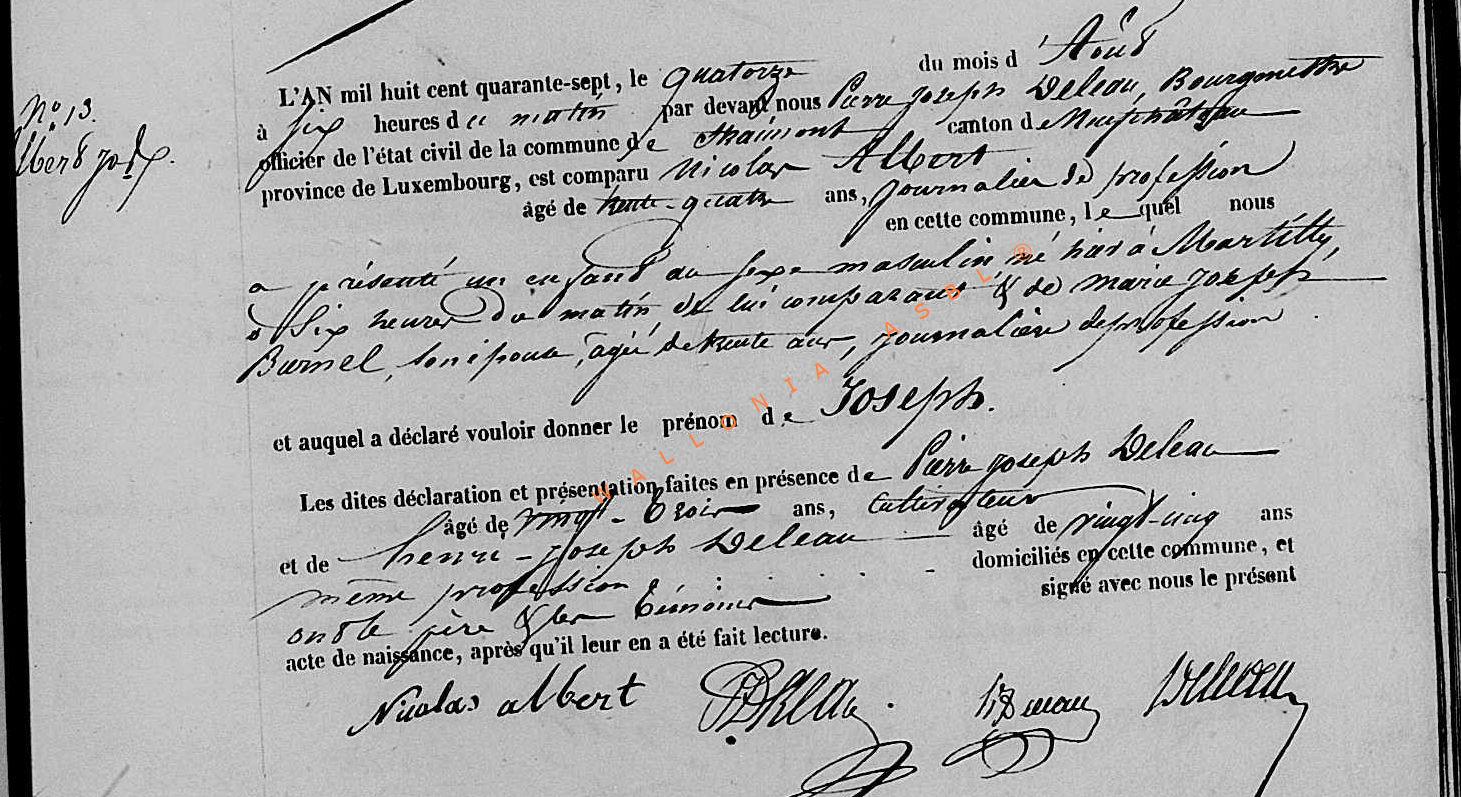 N° 13.
Albert Josph.
L'AN mil huit cent quarante-sept, le quatorze du mois d'Août
à six heures du matin par devant nous Pierre Joseph Deleau, Bourgmestre
officier de l'état civil de la commune de Straimont canton de Neufchâteau
province de Luxembourg, est comparu Nicolas Albert
âgé de trente-quatre ans, journalier de profession
en cette commune, lequel nous
a présenté un enfant du sexe masculin né hier à Martilly,
à Six heures du matin, de lui comparant & de marie joseph
Burnel, son épouse, agée de trente ans, journalière de profession
et auquel a déclaré vouloir donner le prénom de Joseph.
Les dites déclaration et présentation faites en présence de Pierre joseph Deleau
âgé de vingt-trois ans, cultivateur
et de henri-joseph Deleau âgé de vingt-cinq ans
même profession domiciliés en cette commune, et
ont le père & les témoins signé avec nous le présent
acte de naissance, après qu'il leur en a été fait lecture.
Nicolas albert
WALLONIA ASBL ®